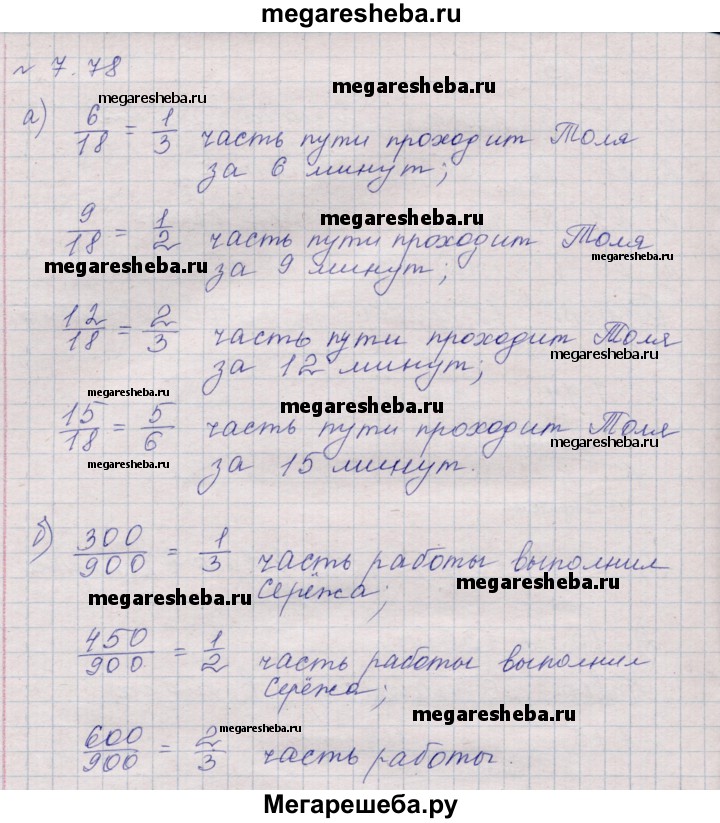 megaresheba.ru
№ 7.78
megaresheba.ru
megaresheba.ru
а) 6/18 = 1/3 часть пути проходит Толя
за 6 минут;
megaresheba.ru
9/18 = 1/2 часть пути проходит Толя
megaresheba.ru
за 9 минут;
megaresheba.ru
12/18 = 2/3 часть пути проходит Толя
megaresheba.ru
за 12 минут;
megaresheba.ru
megaresheba.ru
15/18 = 5/6 часть пути проходит Толя
megaresheba.ru
megaresheba.ru
за 15 минут.
б) 300/900 = 1/3 часть работы выполнил
megaresheba.ru
megaresheba.ru
Серёжа;
megaresheba.ru
450/900 = 1/2 часть работы выполнил
Серёжа;
megaresheba.ru
megaresheba.ru
600/900 = 2/3 часть работы.
Мегарешеба.ру